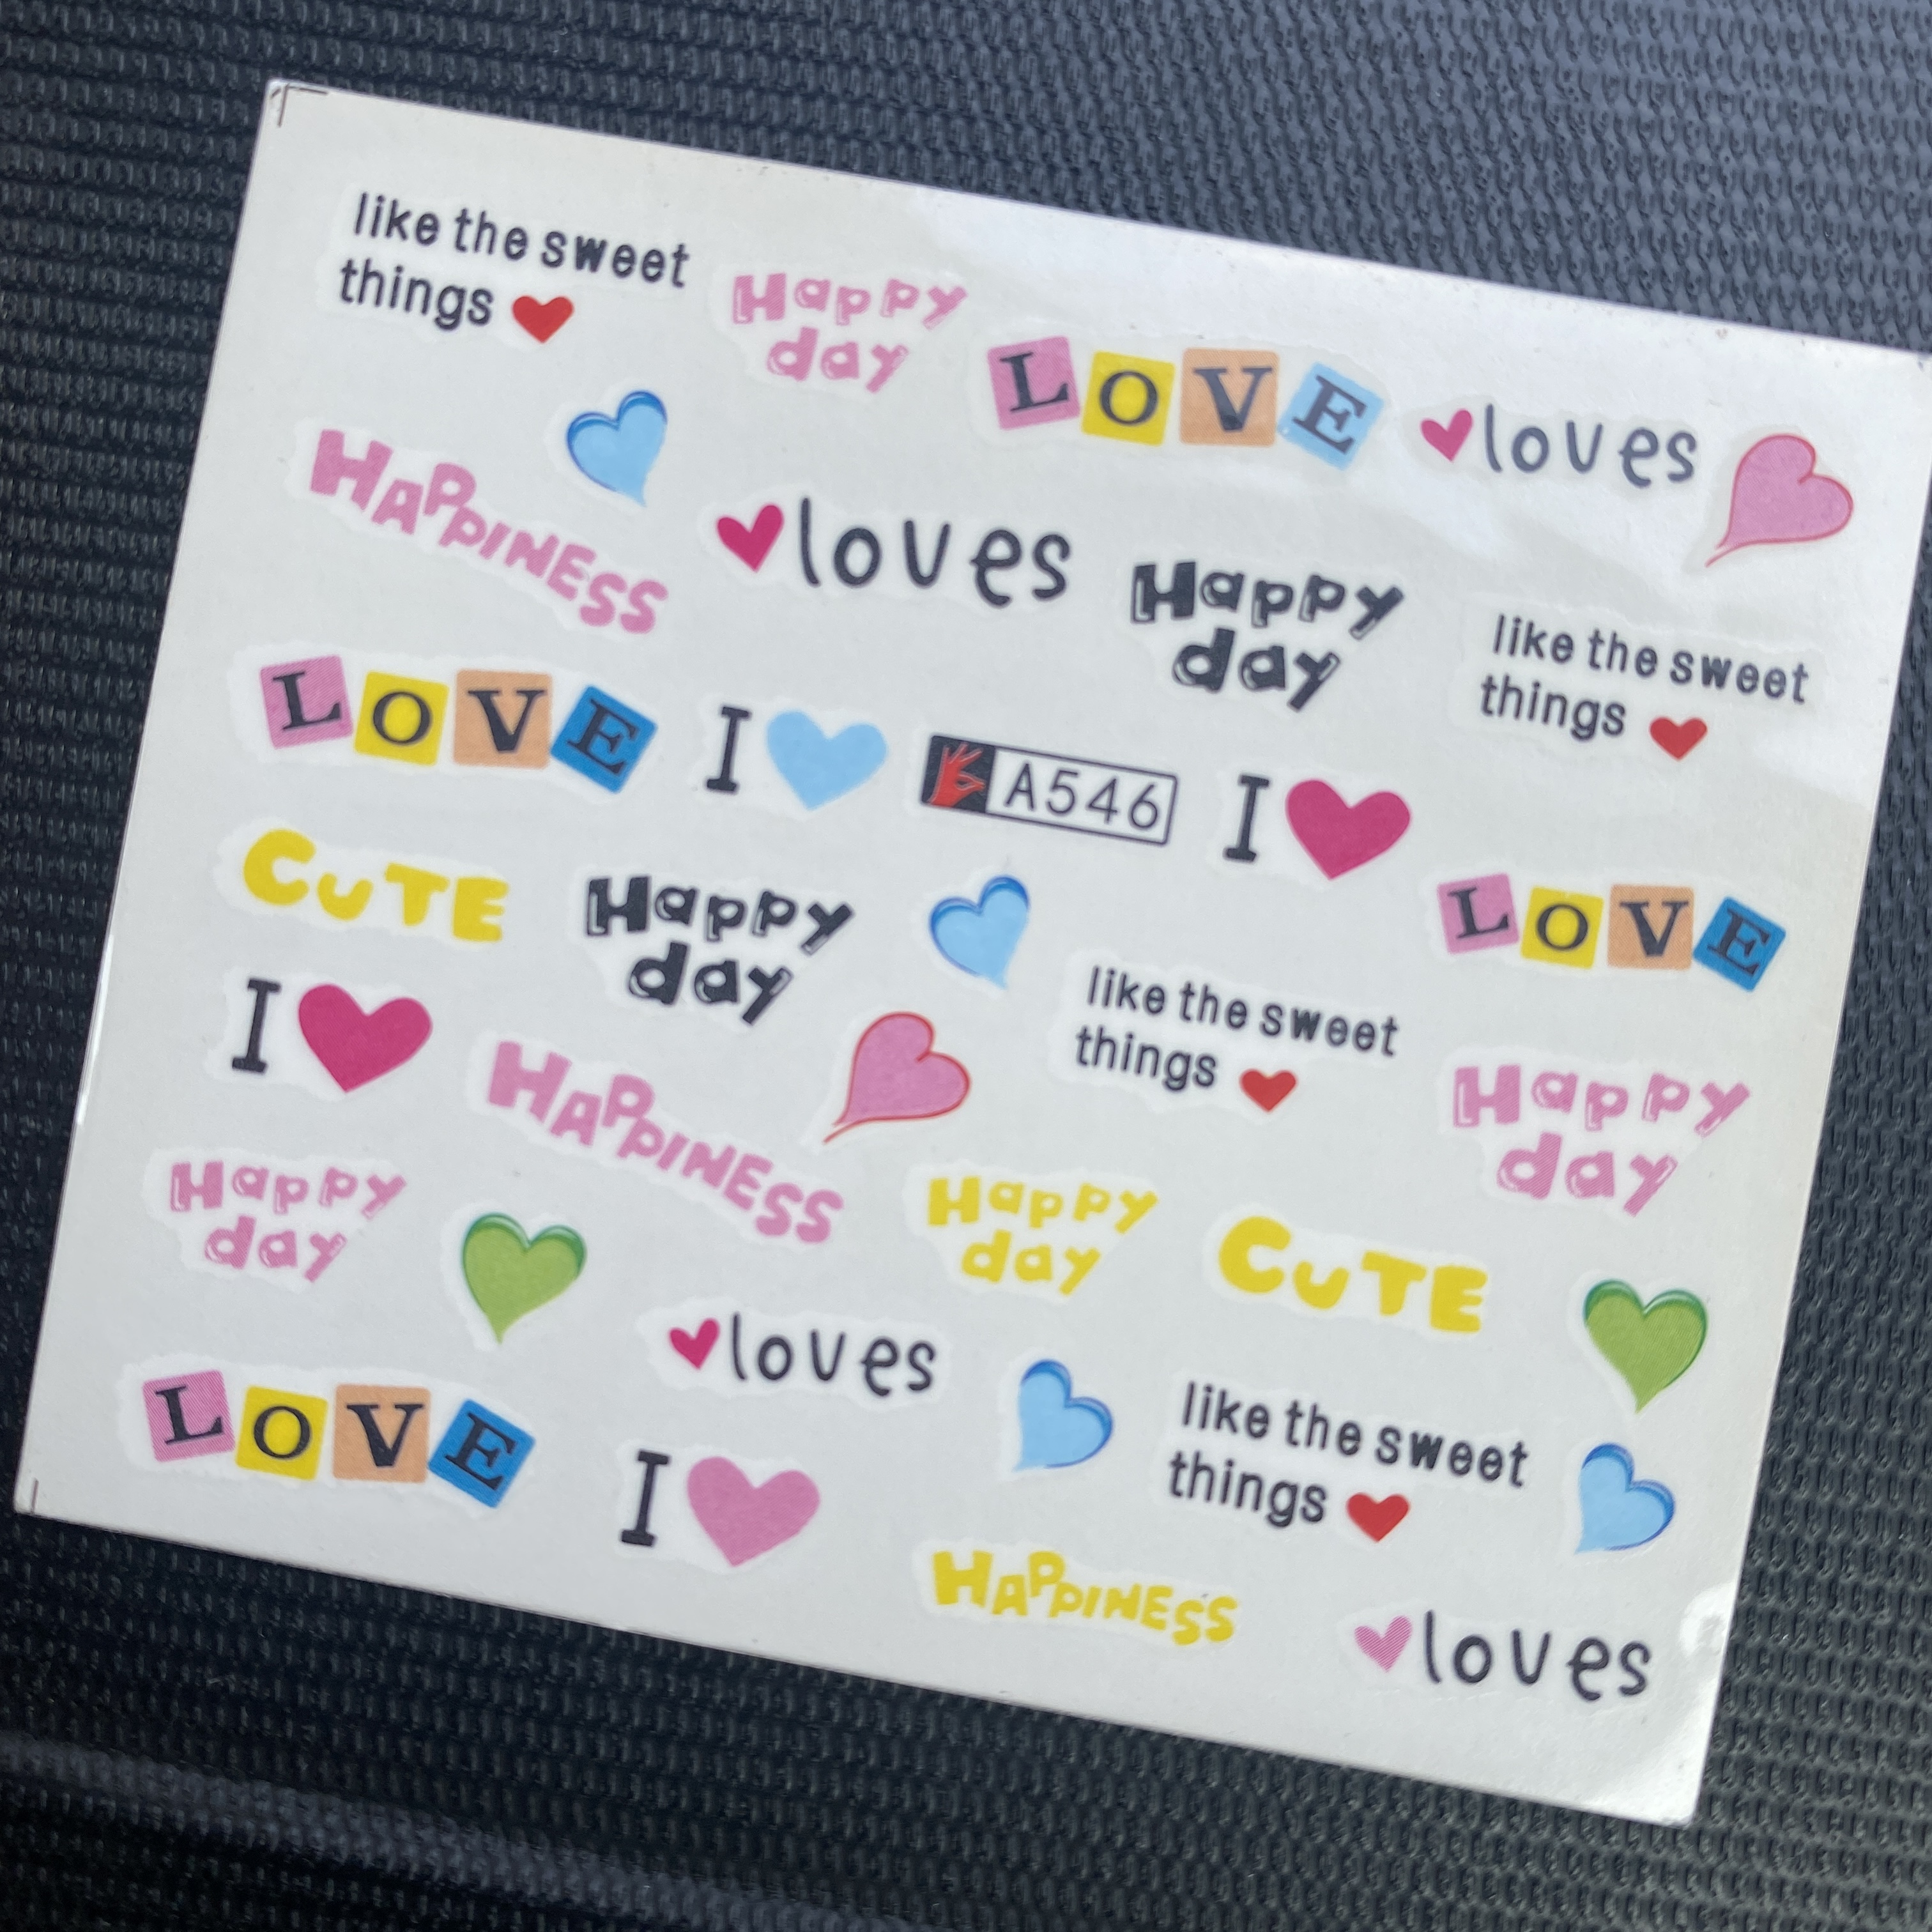 like the sweet
things
Happy
day
LOVE
loves
HAPPINESS
loves
Happy
day
like the sweet
things
LOVE
I
A546
I
LOVE
CUTE
Happy
day
like the sweet
things
I
HAPPINESS
Happy
day
Happy
day
Happy
day
CUTE
loves
LOVE
I
like the sweet
things
HAPPINESS
loves